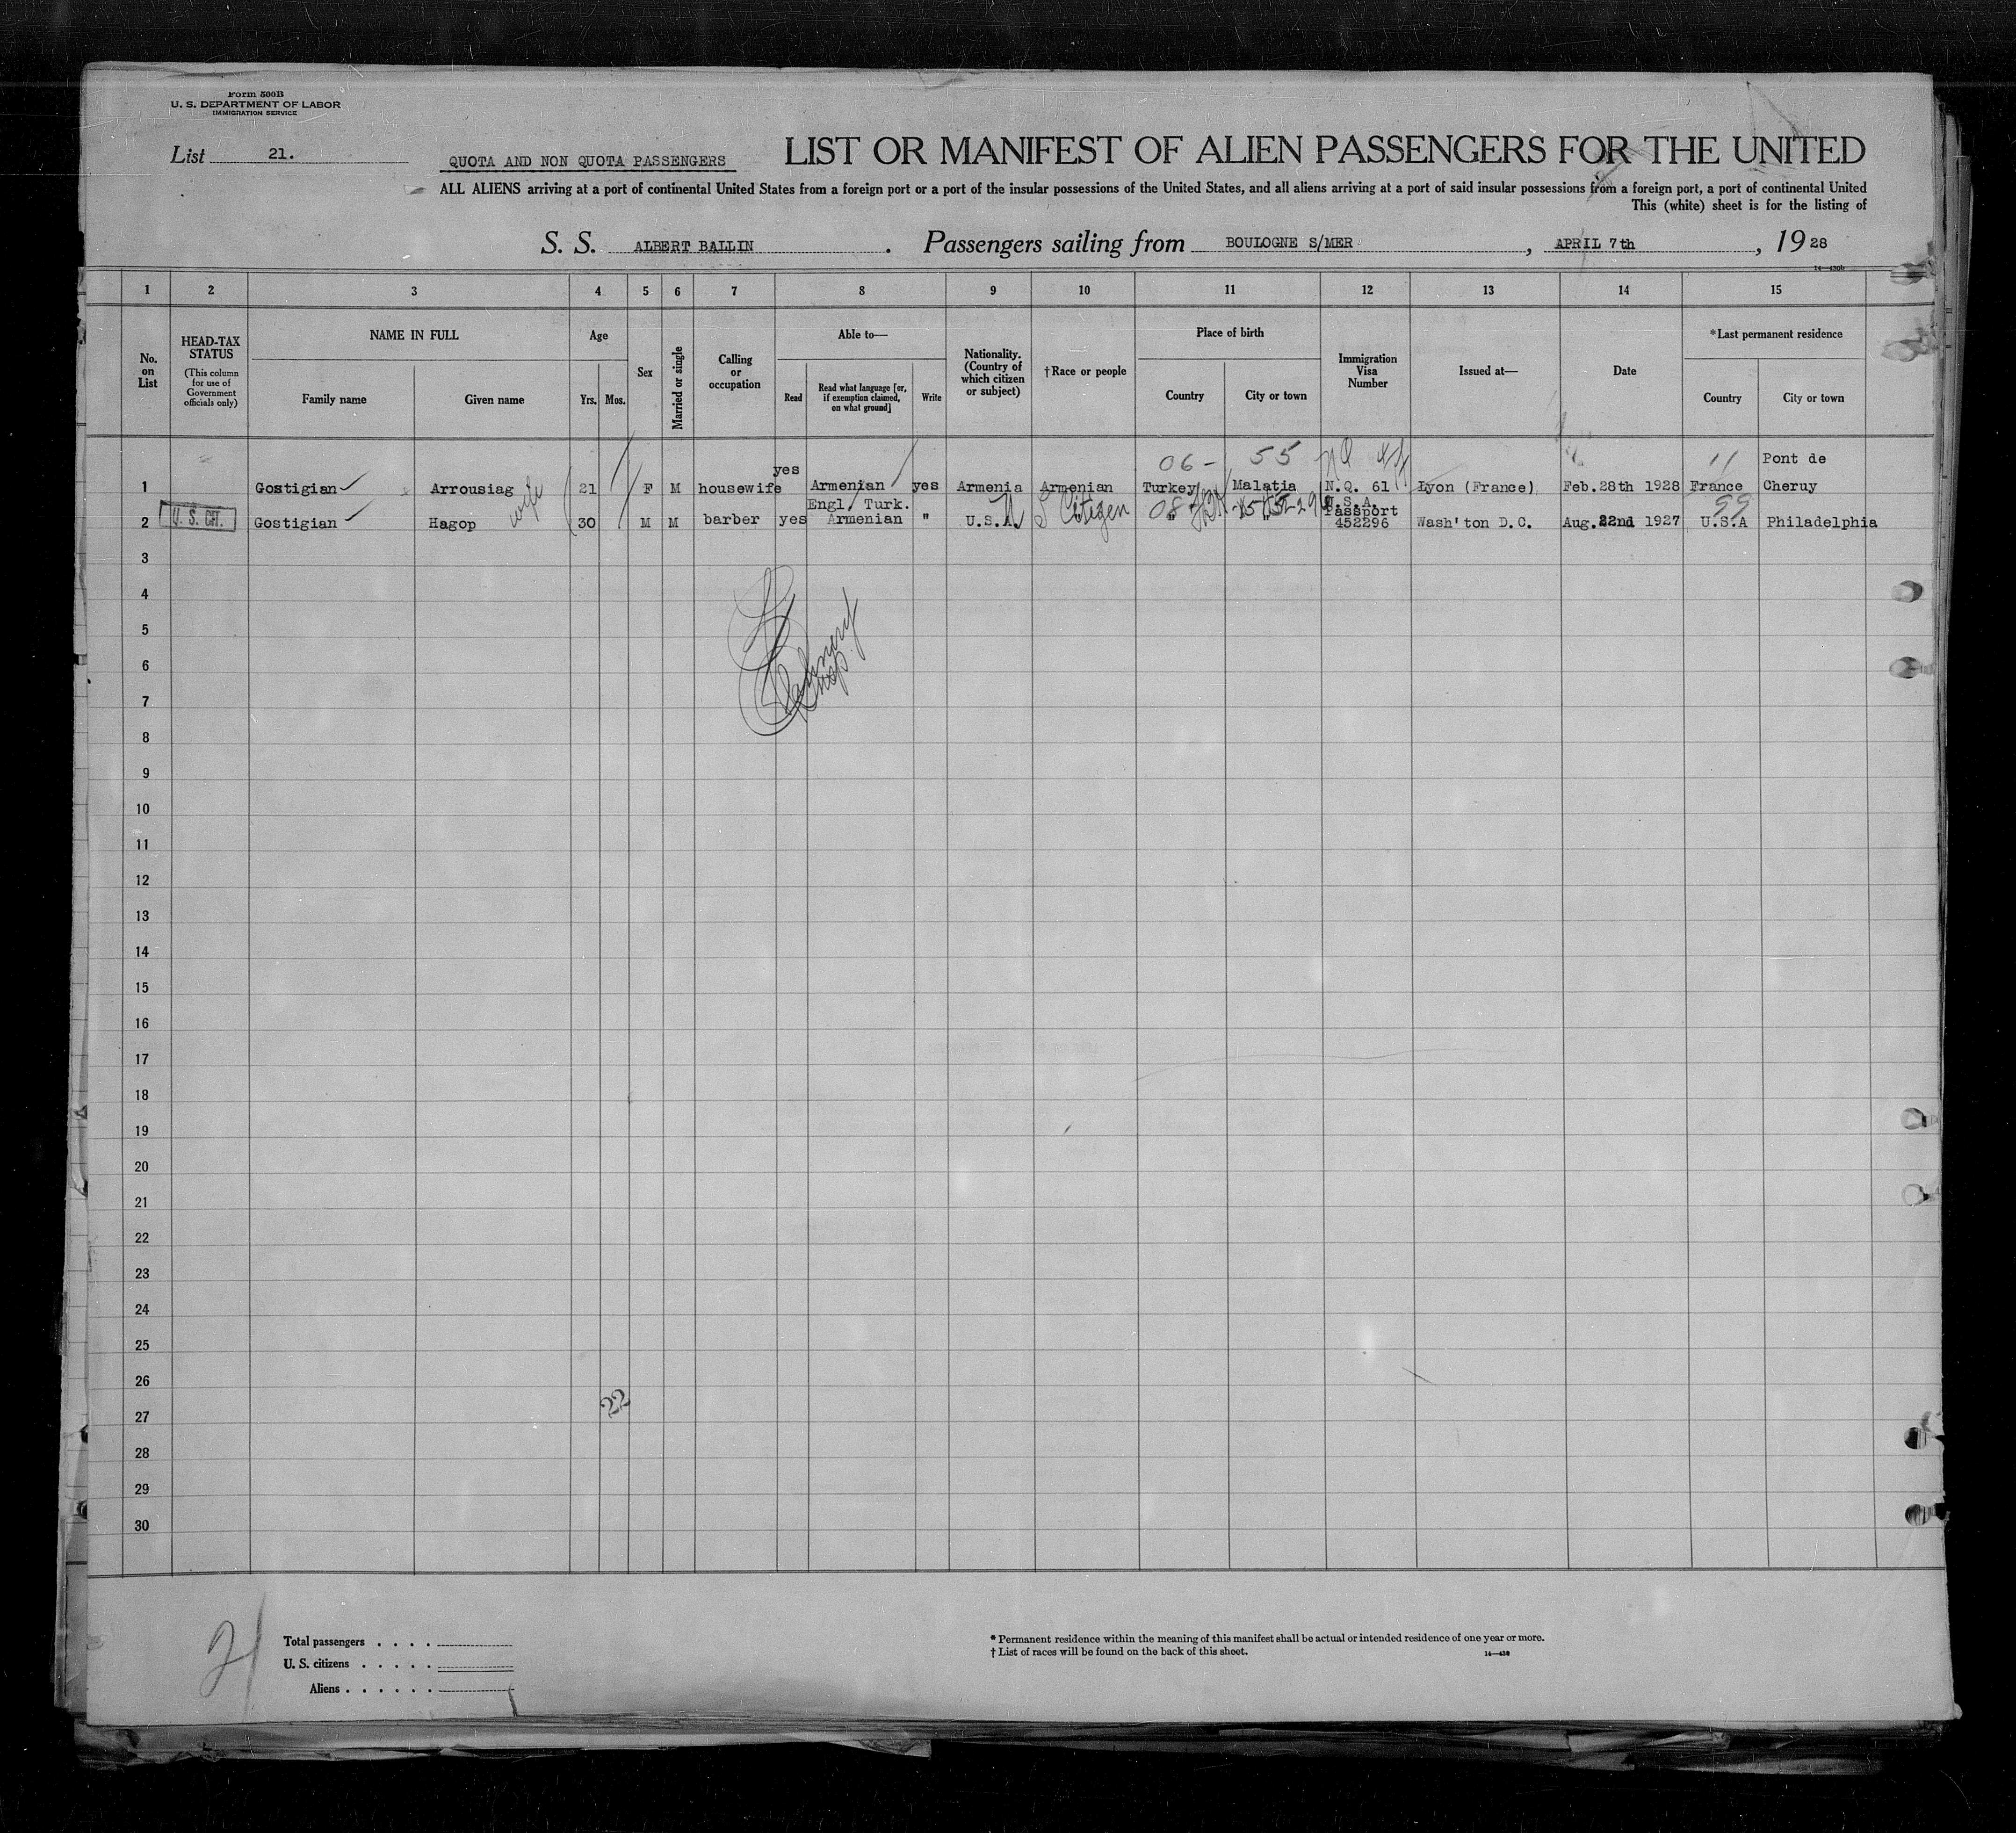 Form 500B
U. S. DEPARTMENT OF LABOR
IMMIGRATION SERVICE
List 21.
QUOTA AND NON QUOTA PASSENGERS
LIST OR MANIFEST OF ALIEN PASSENGERS FOR THE UNITED
ALL ALIENS arriving at a port of continental United States from a foreign port or a port of the insular possessions of the United States, and all aliens arriving at a port of said insular possessions from a foreign port, a port of continental United
This (white) sheet is for the listing of
S. S. ALBERT BALLIN . Passengers sailing from BOULOGNE S/MER , APRIL 7th , 1928
1 2 3 4 5 6 7 8 9 10 11 12 13 14 15
No. on List
HEAD-TAX STATUS
(This column for use of Government officials only)
NAME IN FULL
Family name
Given name
Age
Yrs.
Mos.
Sex
Married or single
Calling or occupation
Able to—
Read
Read what language [or, if exemption claimed, on what ground]
Write
Nationality. (Country of which citizen or subject)
†Race or people
Place of birth
Country
City or town
Immigration Visa Number
Issued at—
Date
*Last permanent residence
Country
City or town
06- 55 11
1 Gostigian Arrousiag wife 21 F M housewife yes Armenian yes Armenia Armenian Turkey Malatia N.Q. 61 Lyon (France) Feb.28th 1928 France Pont de Cheruy
U. S. CIT.
2 Gostigian Hagop 30 M M barber yes Engl/ Turk. Armenian " U.S.A. U S Citizen " " U.S.A. Passport 452296 Wash'ton D.C. Aug.22nd 1927 U.S.A Philadelphia
99
3
4
5
6
7
8
9
10
11
12
13
14
15
16
17
18
19
20
21
22
23
24
25
26
22
27
28
29
30
21
Total passengers . . . .
U. S. citizens . . . . .
Aliens . . . . . .
* Permanent residence within the meaning of this manifest shall be actual or intended residence of one year or more.
† List of races will be found on the back of this sheet.
14—430